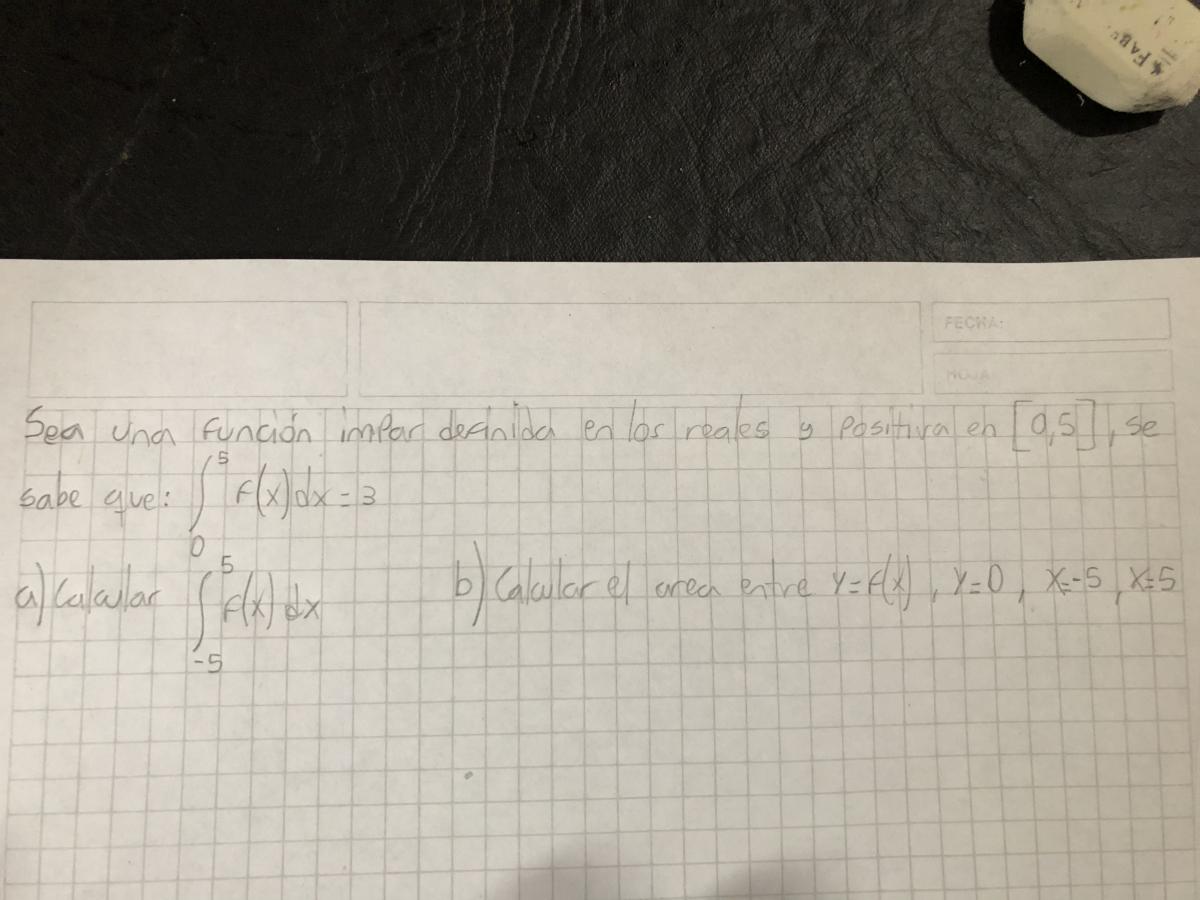 FABE
FECHA:
HOJA:
Sea una función impar definida en los reales y positiva en [0,5], se
sabe que: ∫₀⁵ f(x)dx = 3
a) Calcular ∫₋₅⁵ f(x) dx
b) Calcular el area entre y=f(x), y=0, x=-5, x=5